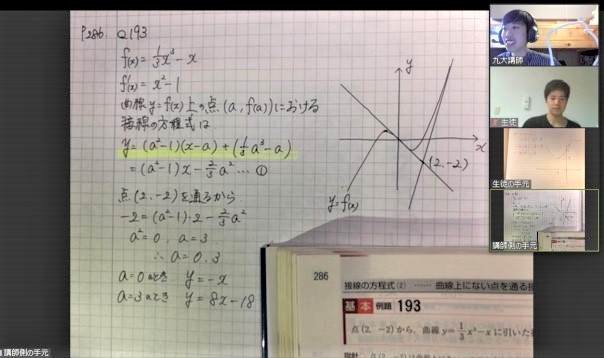 P286 Q193
f(x) = 1/3 x³ - x
f(x) = x² - 1
曲線 y=f(x) 上の点 (a, f(a)) における
接線の方程式は
y = (a²-1)(x-a) + (1/3 a³ - a)
= (a²-1)x - 2/3 a² … ①
点(2, -2)を通るから
-2 = (a²-1)・2 - 2/3 a²
a² = 0, a = 3
∴ a = 0, 3
a=0のとき y = -x
a=3のとき y = 8x - 18
y
x
(2, -2)
y=f(x)
286
接線の方程式 (2) …… 曲線上にない点を通る接
基本 例題 193
点 (2, -2) から, 曲線 y=1/3 x³-x に引いた接
指針
九大講師
生徒
生徒の手元
講師側の手元
講師側の手元